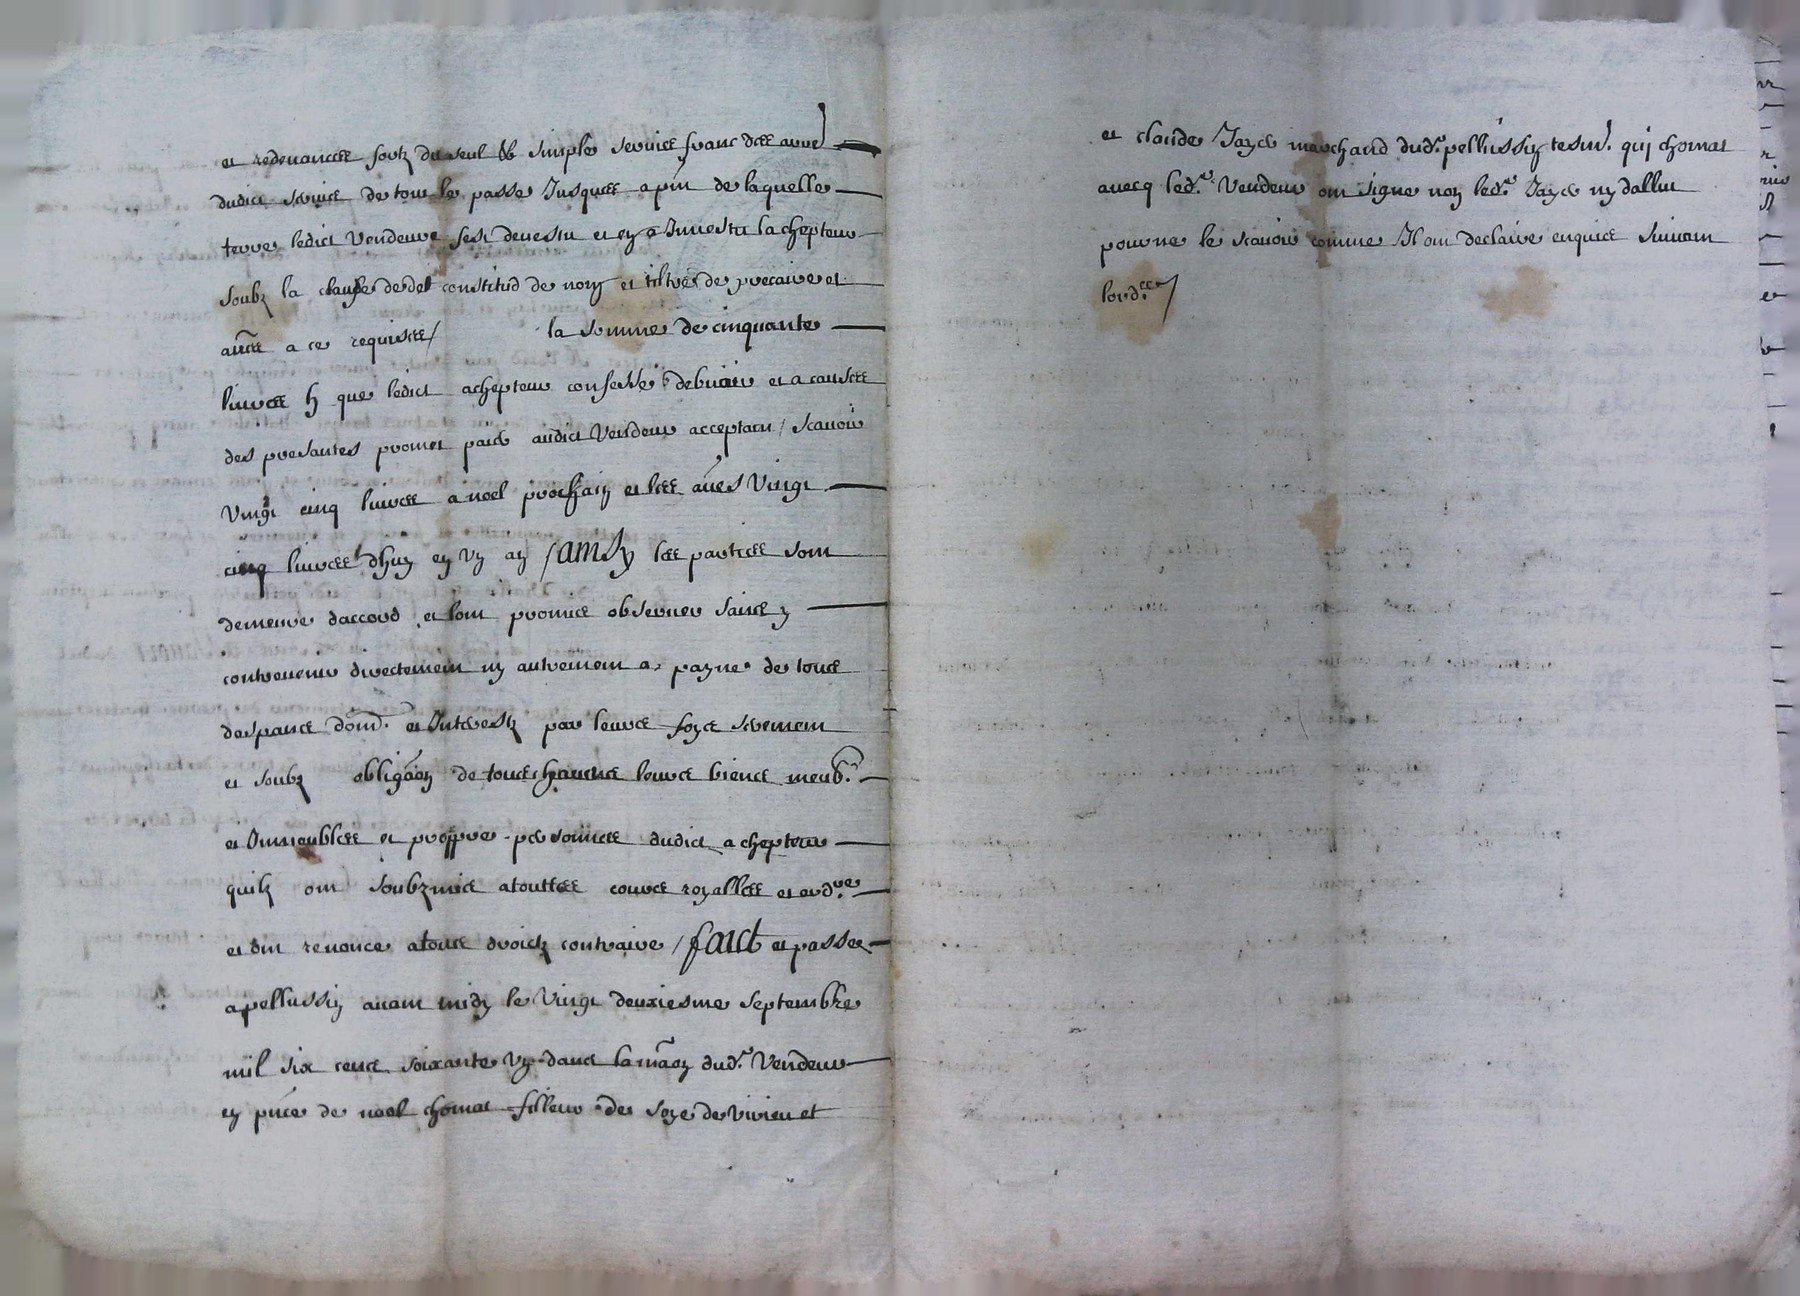 et redevances sortz du seul & simple service franc des arre
dudict service de tout le passe Jusques a pnt de laquelle
terre ledict Vendeur sest devestu et en a Jnvestu lachepteur
soubz la clause de del constitud de nom et tiltre de precaire et
aues a ce requises / la somme de cinquante
livres que ledict achepteur confesse debvoir et a causes
des presantes promet paier audict Vendeur acceptant / scavoir
Vingt cinq livres a noel prochain et les aues Vingt
cinq livres dhuy en un an / Ainsy les parties sont
demeure daccord et lont promis observer sans y
contrevenir directement ny autrement a payne de tous
despance dom. et Interestz par leurs foys serement
et soubz obligaon de tous chascuns leurs biens meub.
et Immeubles et proppre personnes dudict achepteur
quilz ont soubzmis a touttes cours royalles et ord.re
et ont renonce a tous droictz contraire / faict et passe
a pellussin avant midy le Vingt deuxiesme septembre
mil six cens soixante un dans la maon dud. Vendeur
en pnce de noel chomat filleur de soye de Virieu et
et claude Jayer marchand dud. pellussin tesm. qui chomat
avecq led. Vendeur ont signe non led. Jayer ny dallut
pour ne le scavoir comme Jl ont declaire enquis suivant
lord.ce